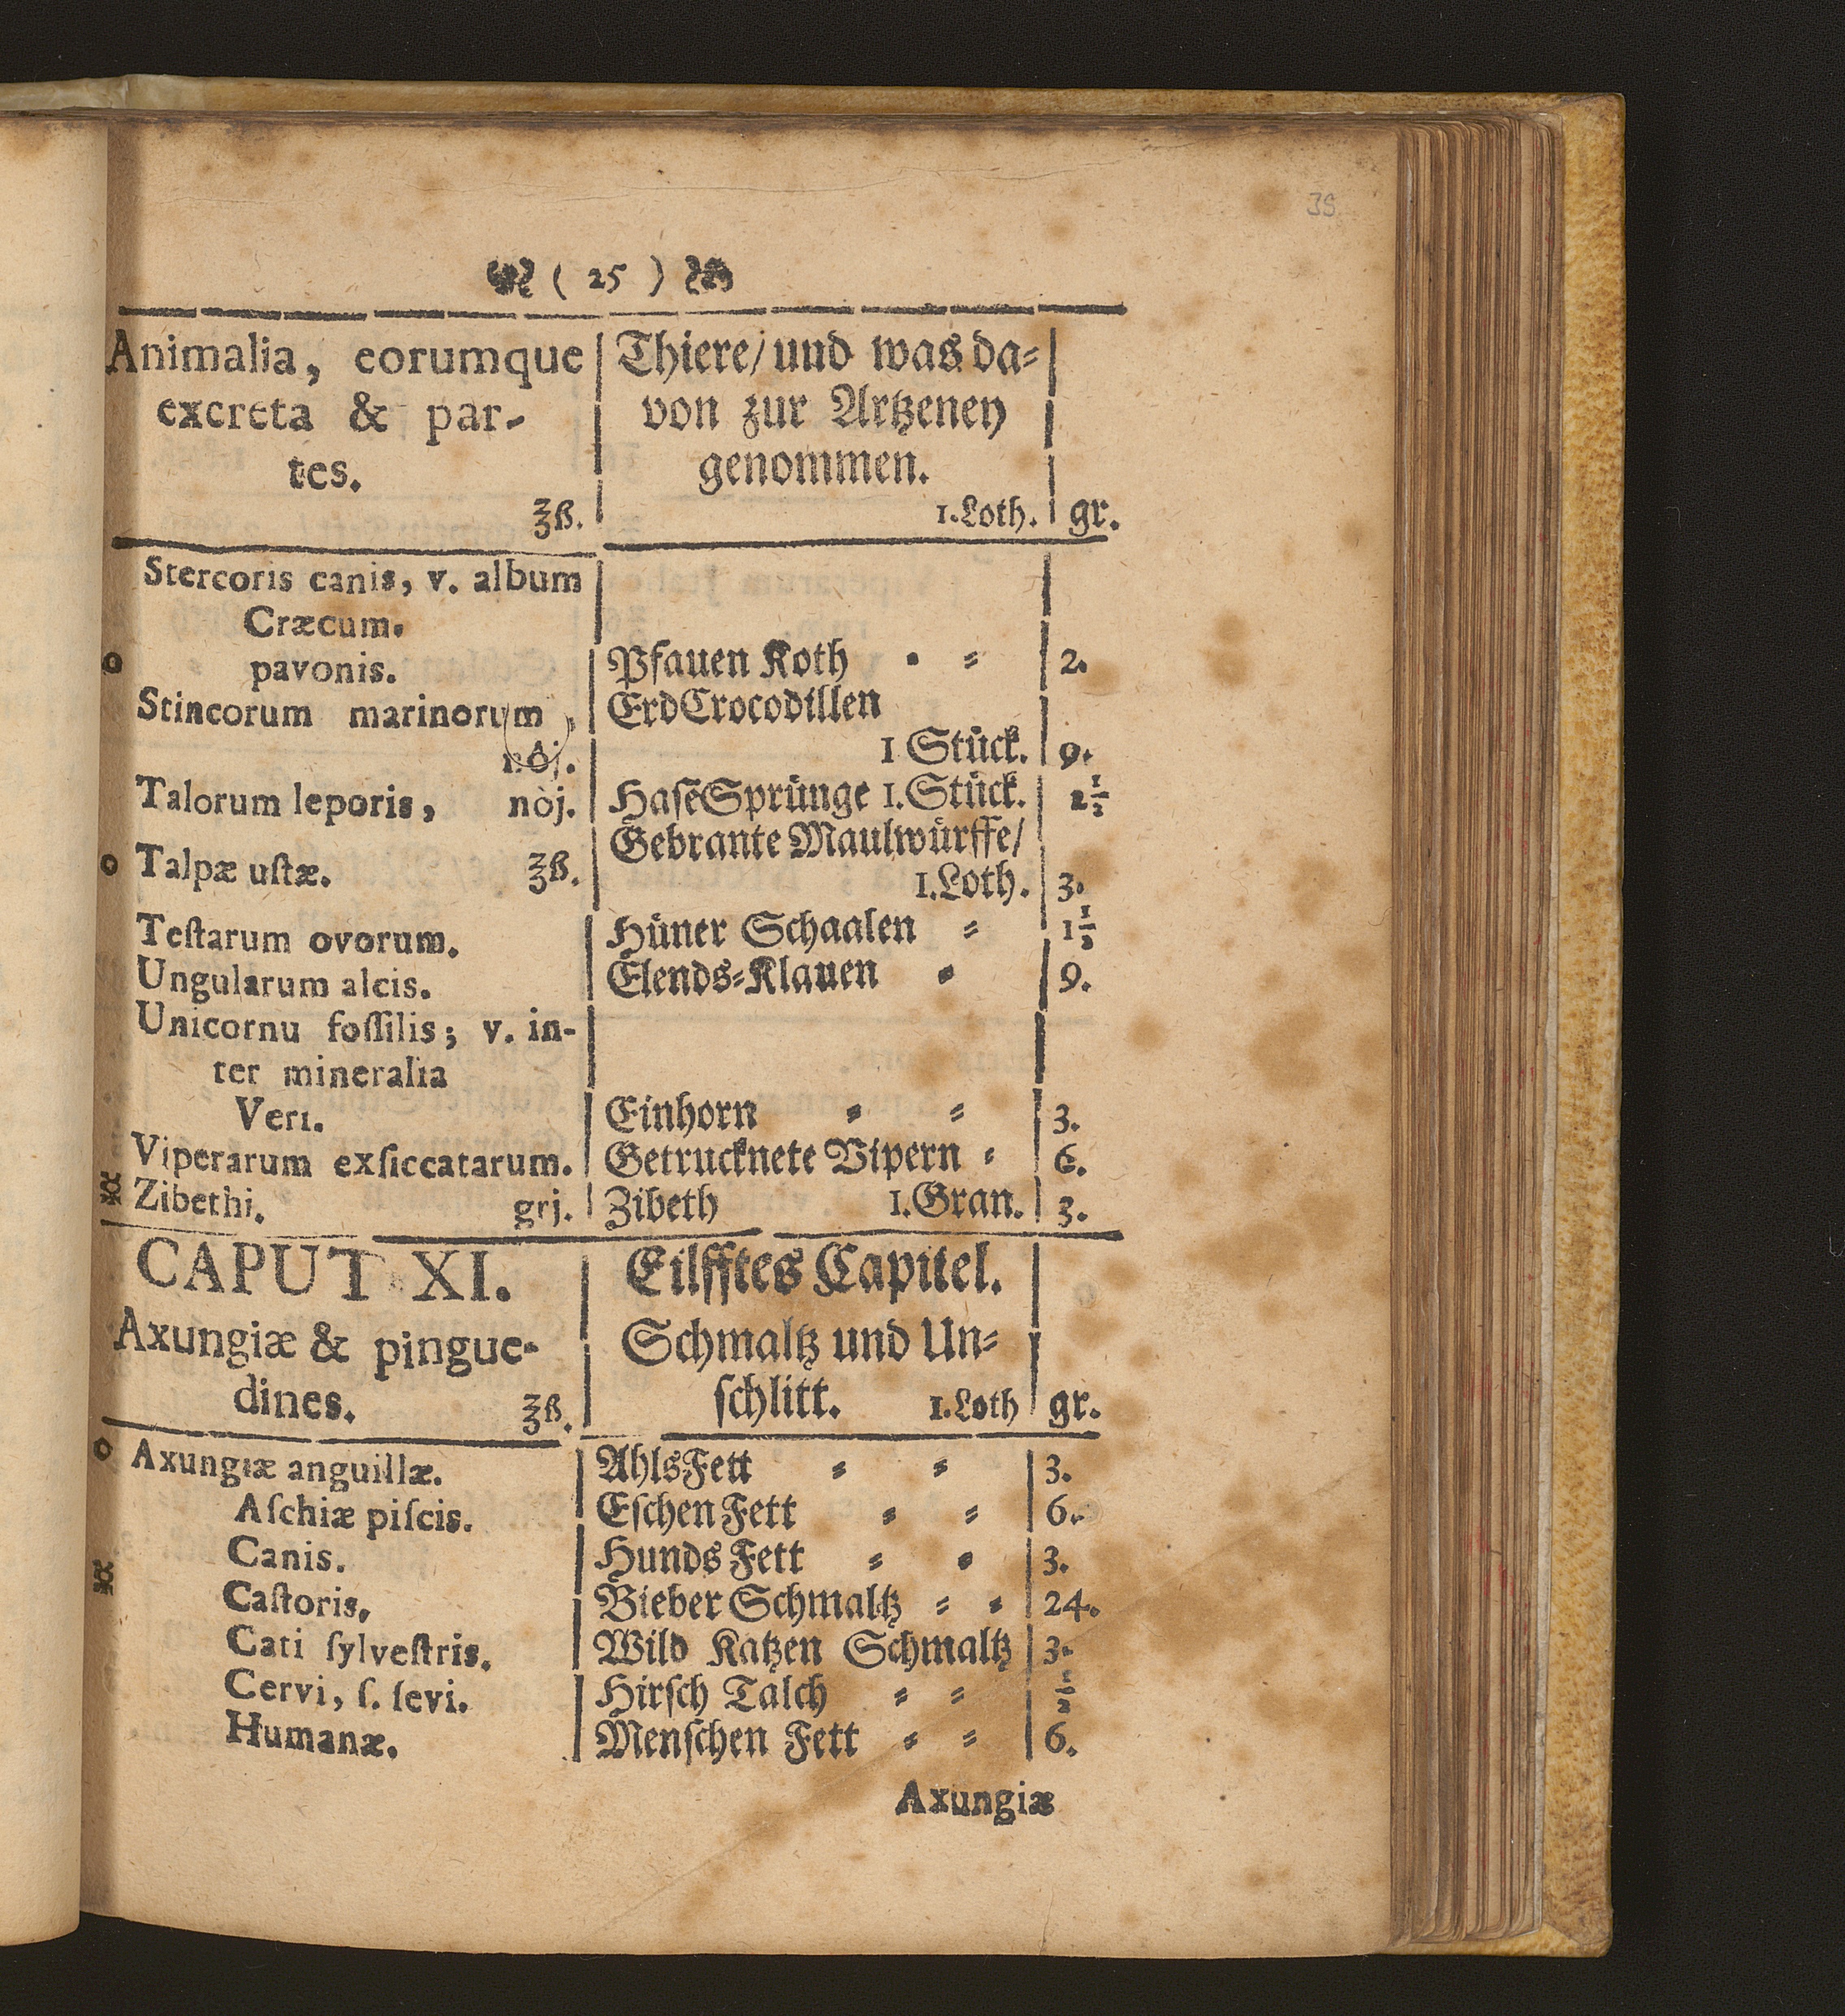 39
( 25 )
Animalia, eorumque | Thiere/ und was da⸗
excreta & par- | von zur Artzeney
tes. | genommen.
ʒß. | 1.Loth. | gr.
Stercoris canis, v. album
Cræcum.
o pavonis. | Pfauen Koth ⸗ ⸗ | 2.
Stincorum marinorum, | ErdCrocodillen
nòj. | 1 Stück. | 9.
Talorum leporis, nòj. | HasēSprünge 1.Stück. | 2 1/2
Gebrante Maulwürffe/
o Talpæ ustæ. ʒß. | 1.Loth. | 3.
Testarum ovorum. | Hüner Schaalen ⸗ | 1 1/2
Ungularum alcis. | Elends⸗Klauen ⸗ | 9.
Unicornu fossilis; v. in-
ter mineralia
Veri. | Einhorn ⸗ ⸗ | 3.
Viperarum exsiccatarum. | Getrucknete Vipern ⸗ | 6.
Zibethi. grj. | Zibeth 1.Gran. | 3.
CAPUT XI. | Eilfftes Capitel.
Axungiæ & pingue- | Schmaltz und Un⸗
dines. ʒß. | schlitt. 1.Loth | gr.
o Axungiæ anguillæ. | AhlsFett ⸗ ⸗ | 3.
Aschiæ piscis. | EschenFett ⸗ ⸗ | 6.
Canis. | Hunds Fett ⸗ ⸗ | 3.
Castoris. | Bieber Schmaltz ⸗ ⸗ | 24.
Cati sylvestris. | Wild Katzen Schmaltz | 3.
Cervi, s. sevi. | Hirsch Talch ⸗ ⸗ | 1/2
Humanæ. | Menschen Fett ⸗ ⸗ | 6.
Axungiæ